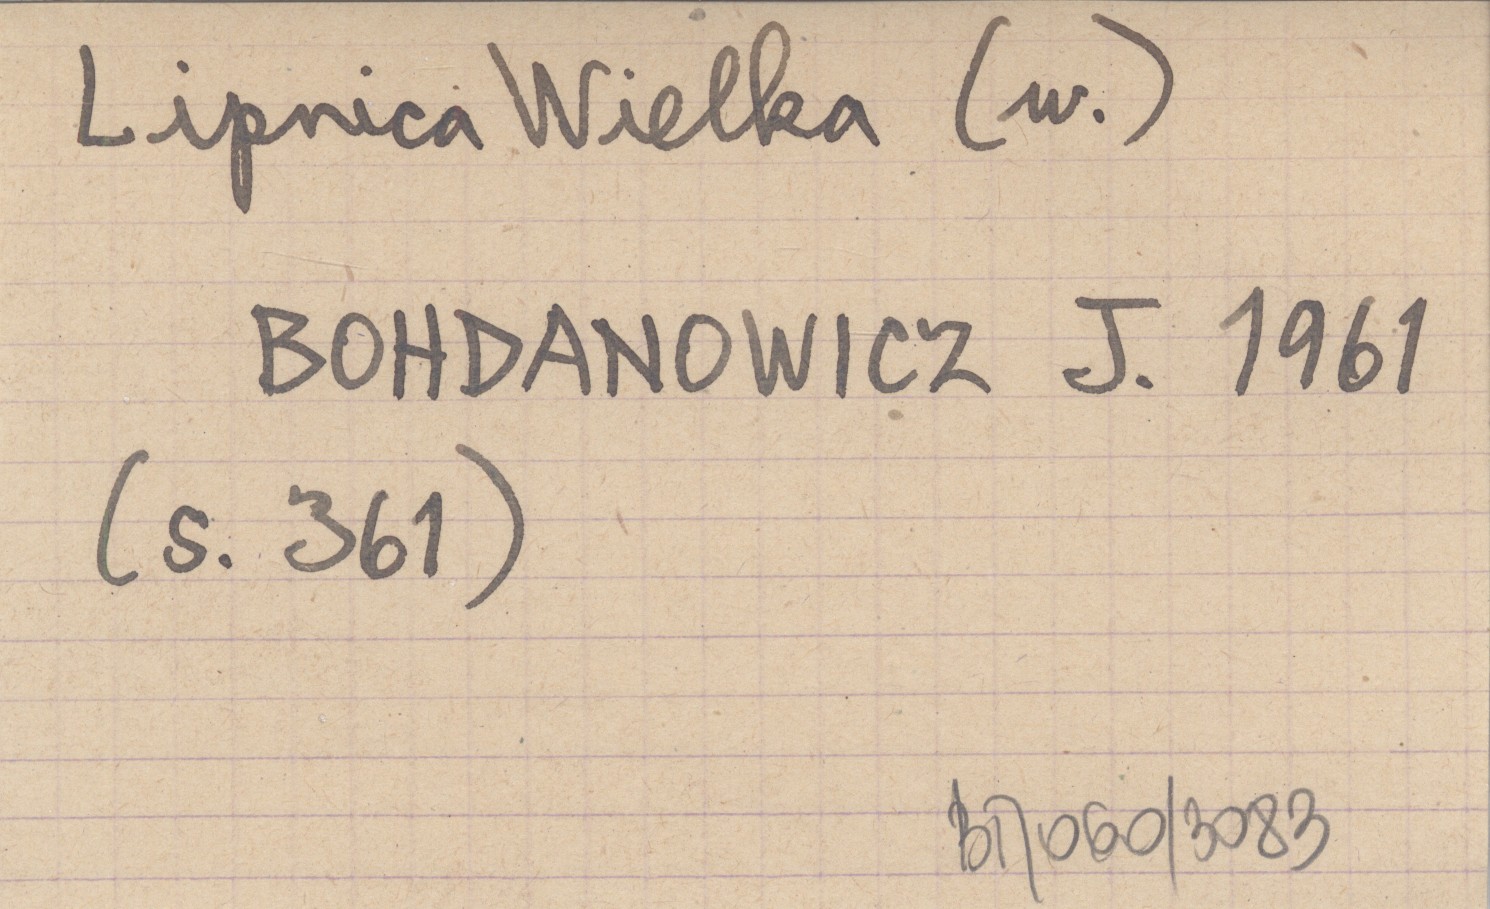 Lipnica Wielka (w.)
BOHDANOWICZ J. 1961
(s. 361)
060/3083